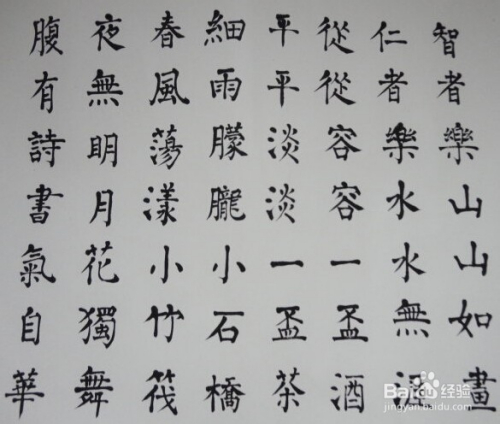 智者樂山山如畫
仁者樂水水無涯
從從容容一盃酒
平平淡淡一盃茶
細雨朦朧小石橋
春風蕩漾小竹筏
夜無明月花獨舞
腹有詩書氣自華
Baidu 经验
jingyan.baidu.com